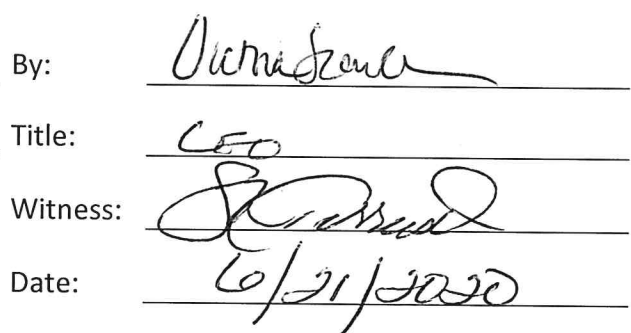 By:
Title: CEO
Witness:
Date: 6/21/2020